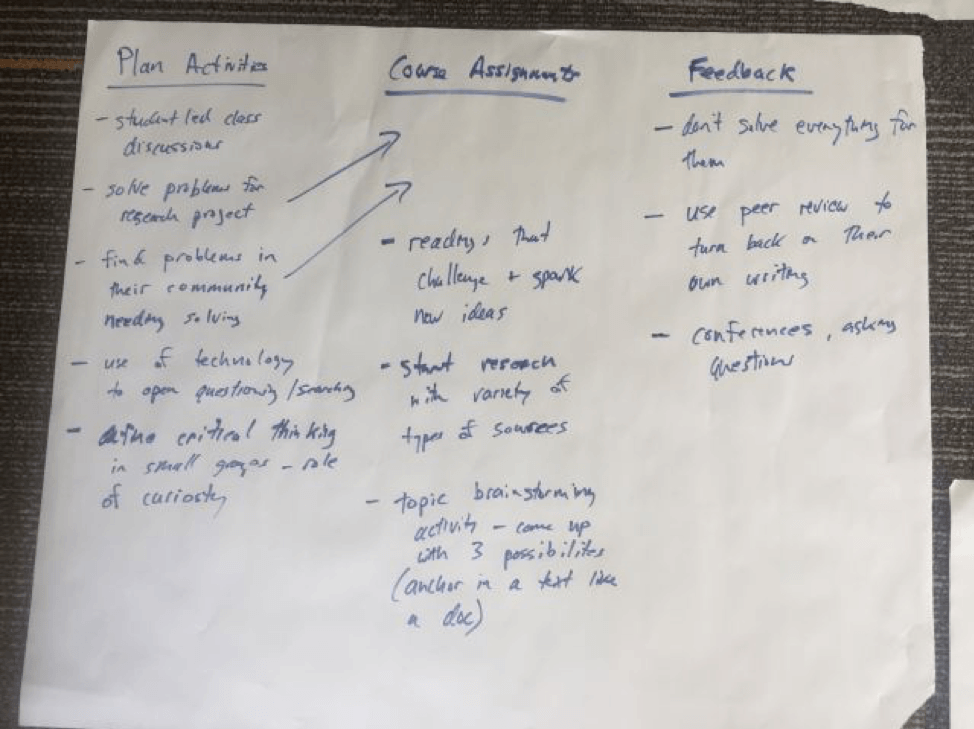 Plan Activities
- student led class
discussions
- solve problems for
research project
- find problems in
their community
needing solving
- use of technology
to open questioning/searching
- define critical thinking
in small groups - role
of curiosity
Course Assignments
- readings that
challenge + spark
new ideas
- start research
with variety of
types of sources
- topic brainstorming
activity - come up
with 3 possibilites
(anchor in a text like
a doc)
Feedback
- don't solve everything for
them
- use peer review to
turn back on their
own writing
- conferences, asking
questions